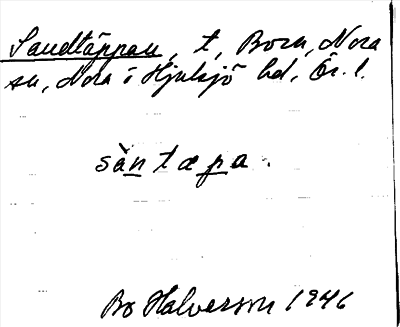 Sandtäppan, t, Bora, Nora
sn, Nora o Hjulsjö bd, Ör. l.
sàntæpa.
Bo Halverson 1946